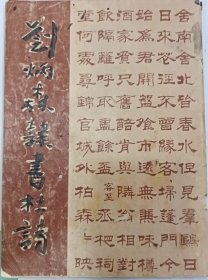 劉炳森隸書杜詩
舍南舍北皆春水但見羣鷗日
日來花徑不曾緣客掃蓬門今
始為君開盤飧市遠無兼味樽
酒家貧只舊醅肯與鄰翁相對
飲隔籬呼取盡餘杯 客至 丞相祠
堂何處尋錦官城外柏森々映